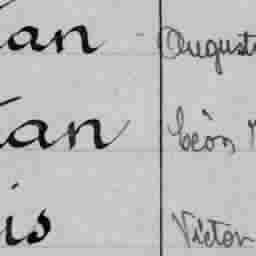 an August
tan Léon
is Victor